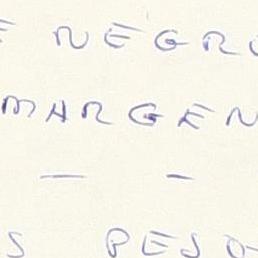 E NEGRO
MARGEN
— —
S PESO